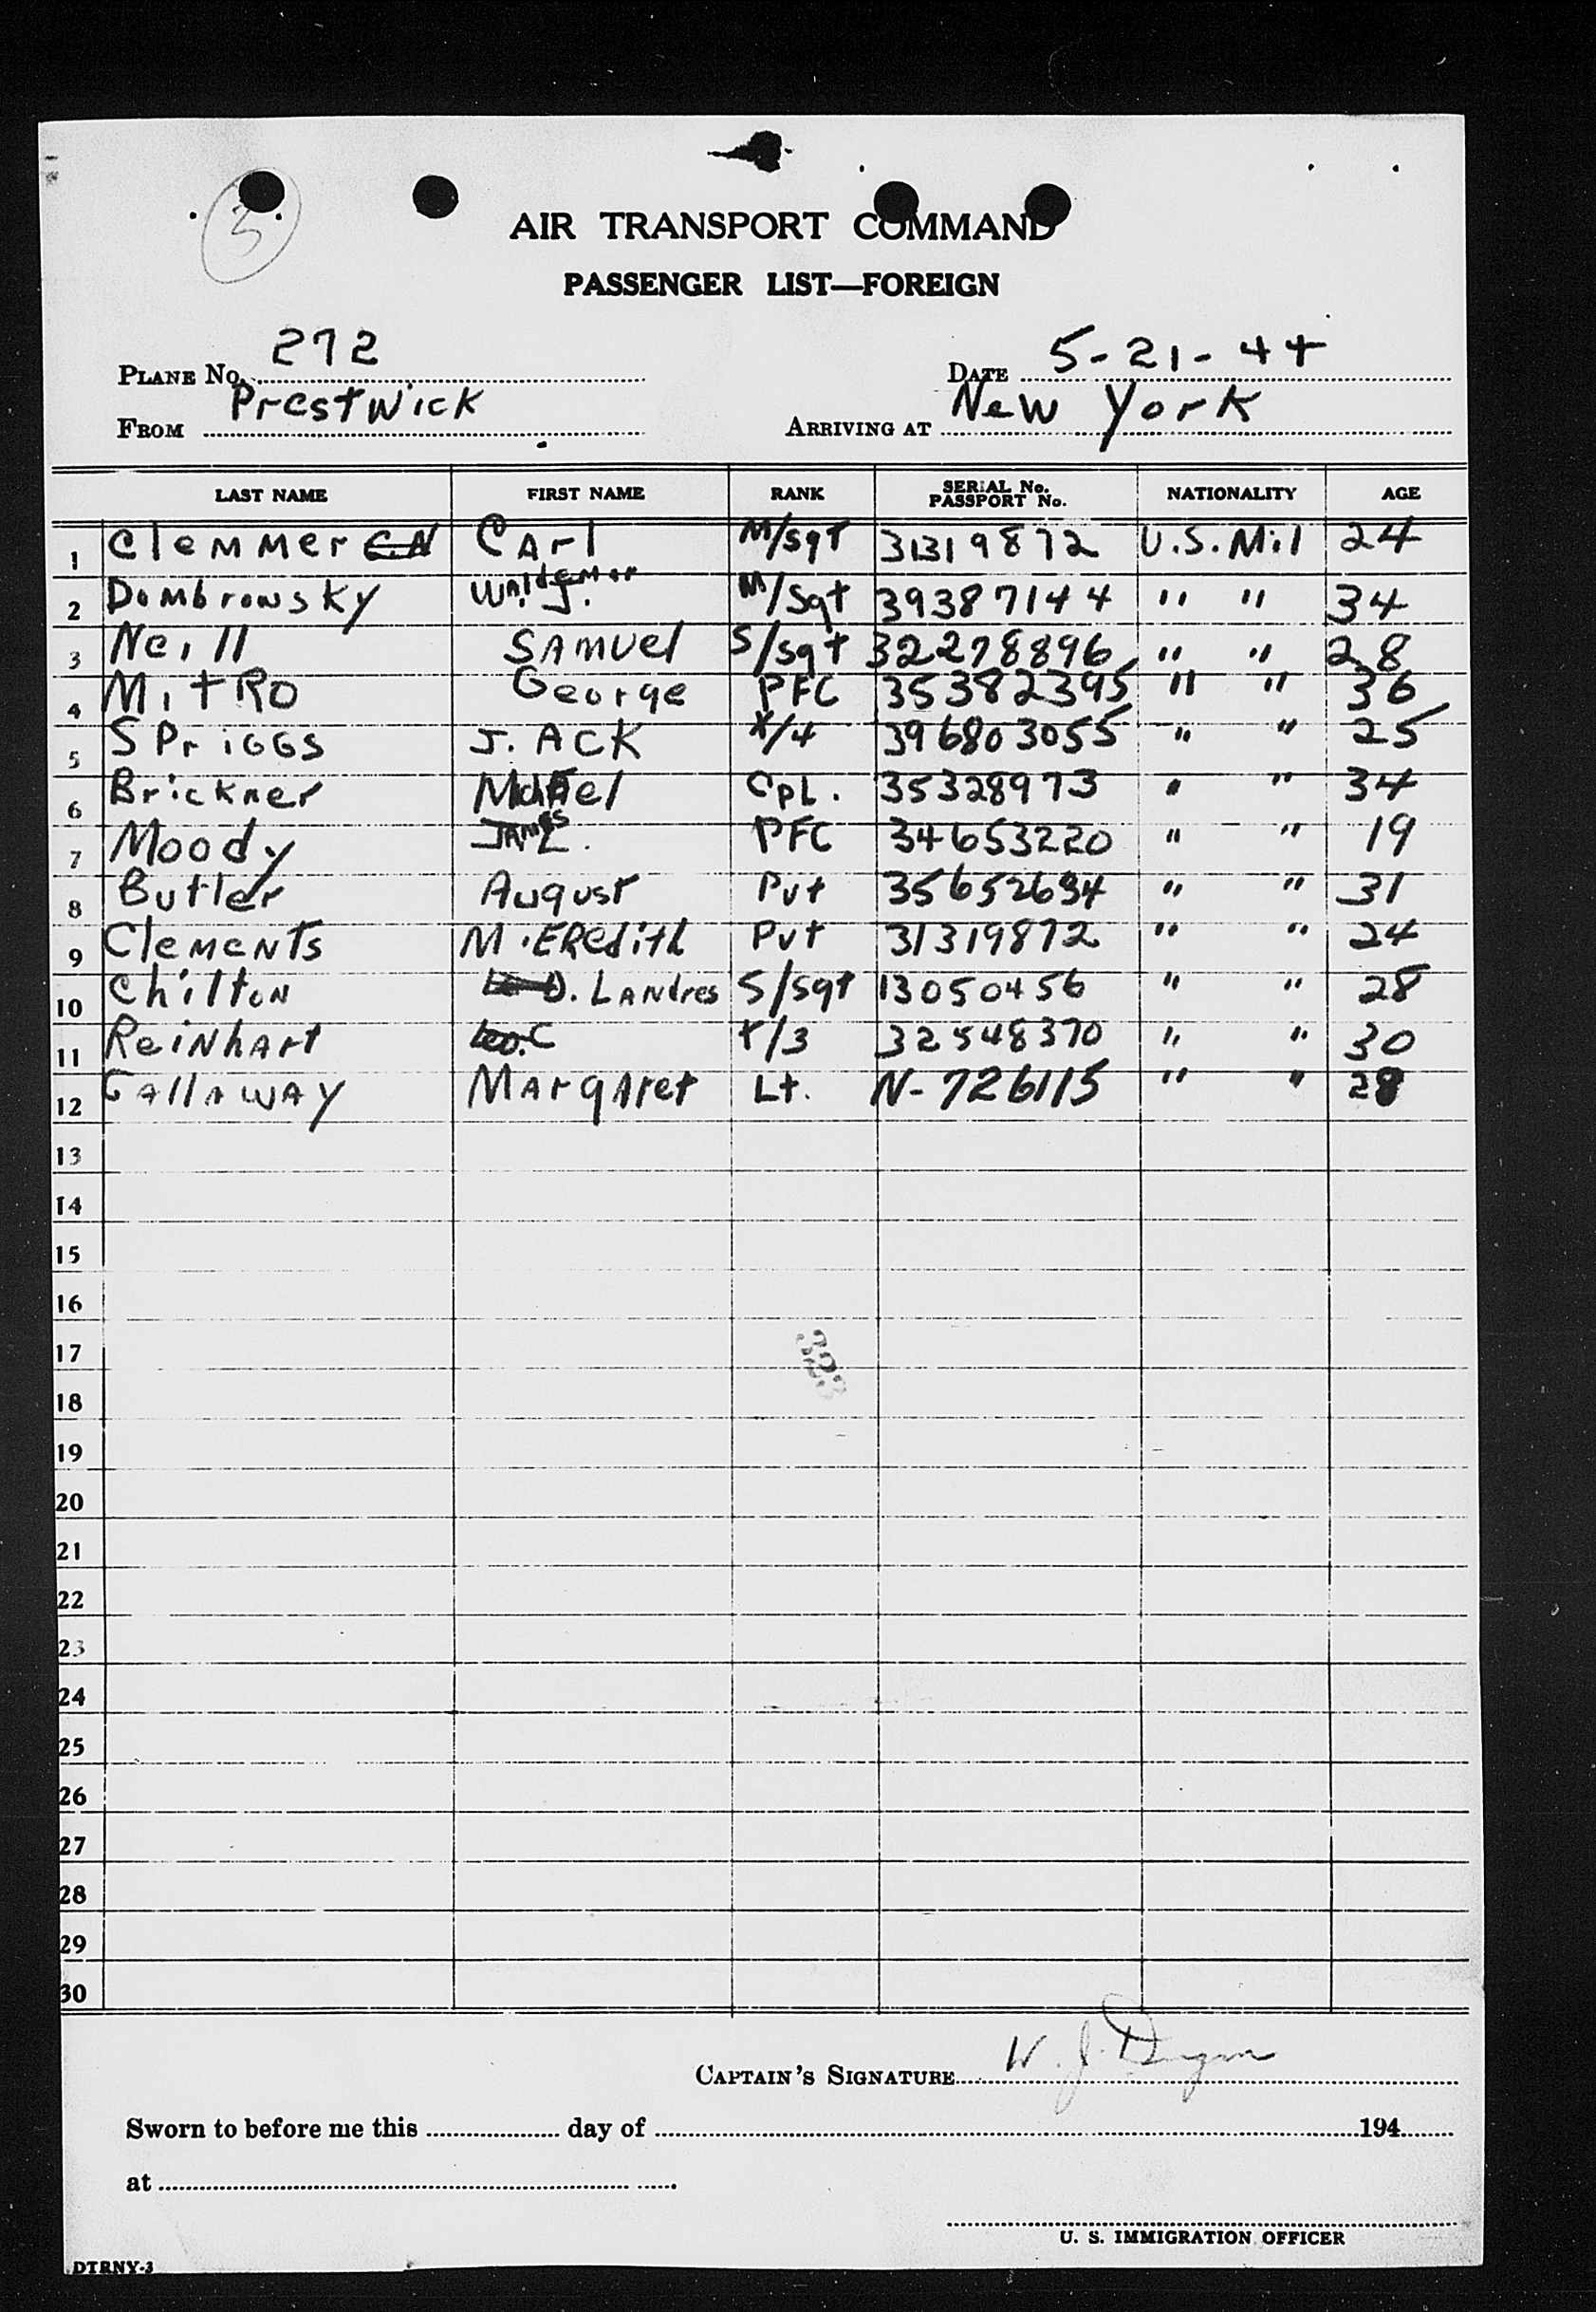 3
AIR TRANSPORT COMMAND
PASSENGER LIST—FOREIGN
PLANE No. 272 DATE 5-21-44
FROM Prestwick ARRIVING AT New York
LAST NAME FIRST NAME RANK SERIAL No. PASSPORT No. NATIONALITY AGE
1 Clemmer Carl M/Sgt 31319872 U.S. Mil 24
2 Dombrowsky Waldemar J. M/Sgt 39387144 " " 34
3 Neill Samuel S/Sgt 32278896 " " 28
4 Mitro George PFC 35382395 " " 36
5 Spriggs J. Ack /4 396803055 " " 25
6 Brickner Cpl. 35328973 " " 34
7 Moody James L. PFC 34653220 " " 19
8 Butler August Pvt 35652694 " " 31
9 Clements M. Eredith Pvt 31319872 " " 24
10 Chilton D. Landres S/Sgt 13050456 " " 28
11 Reinhart Leo. C T/3 32548370 " " 30
12 Gallaway Margaret Lt. N-726115 " " 28
13
14
15
16
17
18
19
20
21
22
23
24
25
26
27
28
29
30
323
CAPTAIN'S SIGNATURE W. J.
Sworn to before me this day of 194
at
U. S. IMMIGRATION OFFICER
DTRNY-3